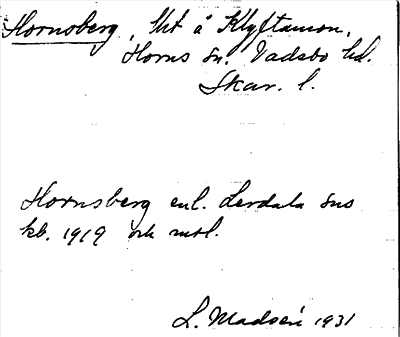 Hornsberg, lht å Klyftamon,
Horns sn. Vadsbo hd.
Skar. l.
Hornsberg enl. Lerdala sns
kb. 1919 och muntl.
L. Madsén 1931